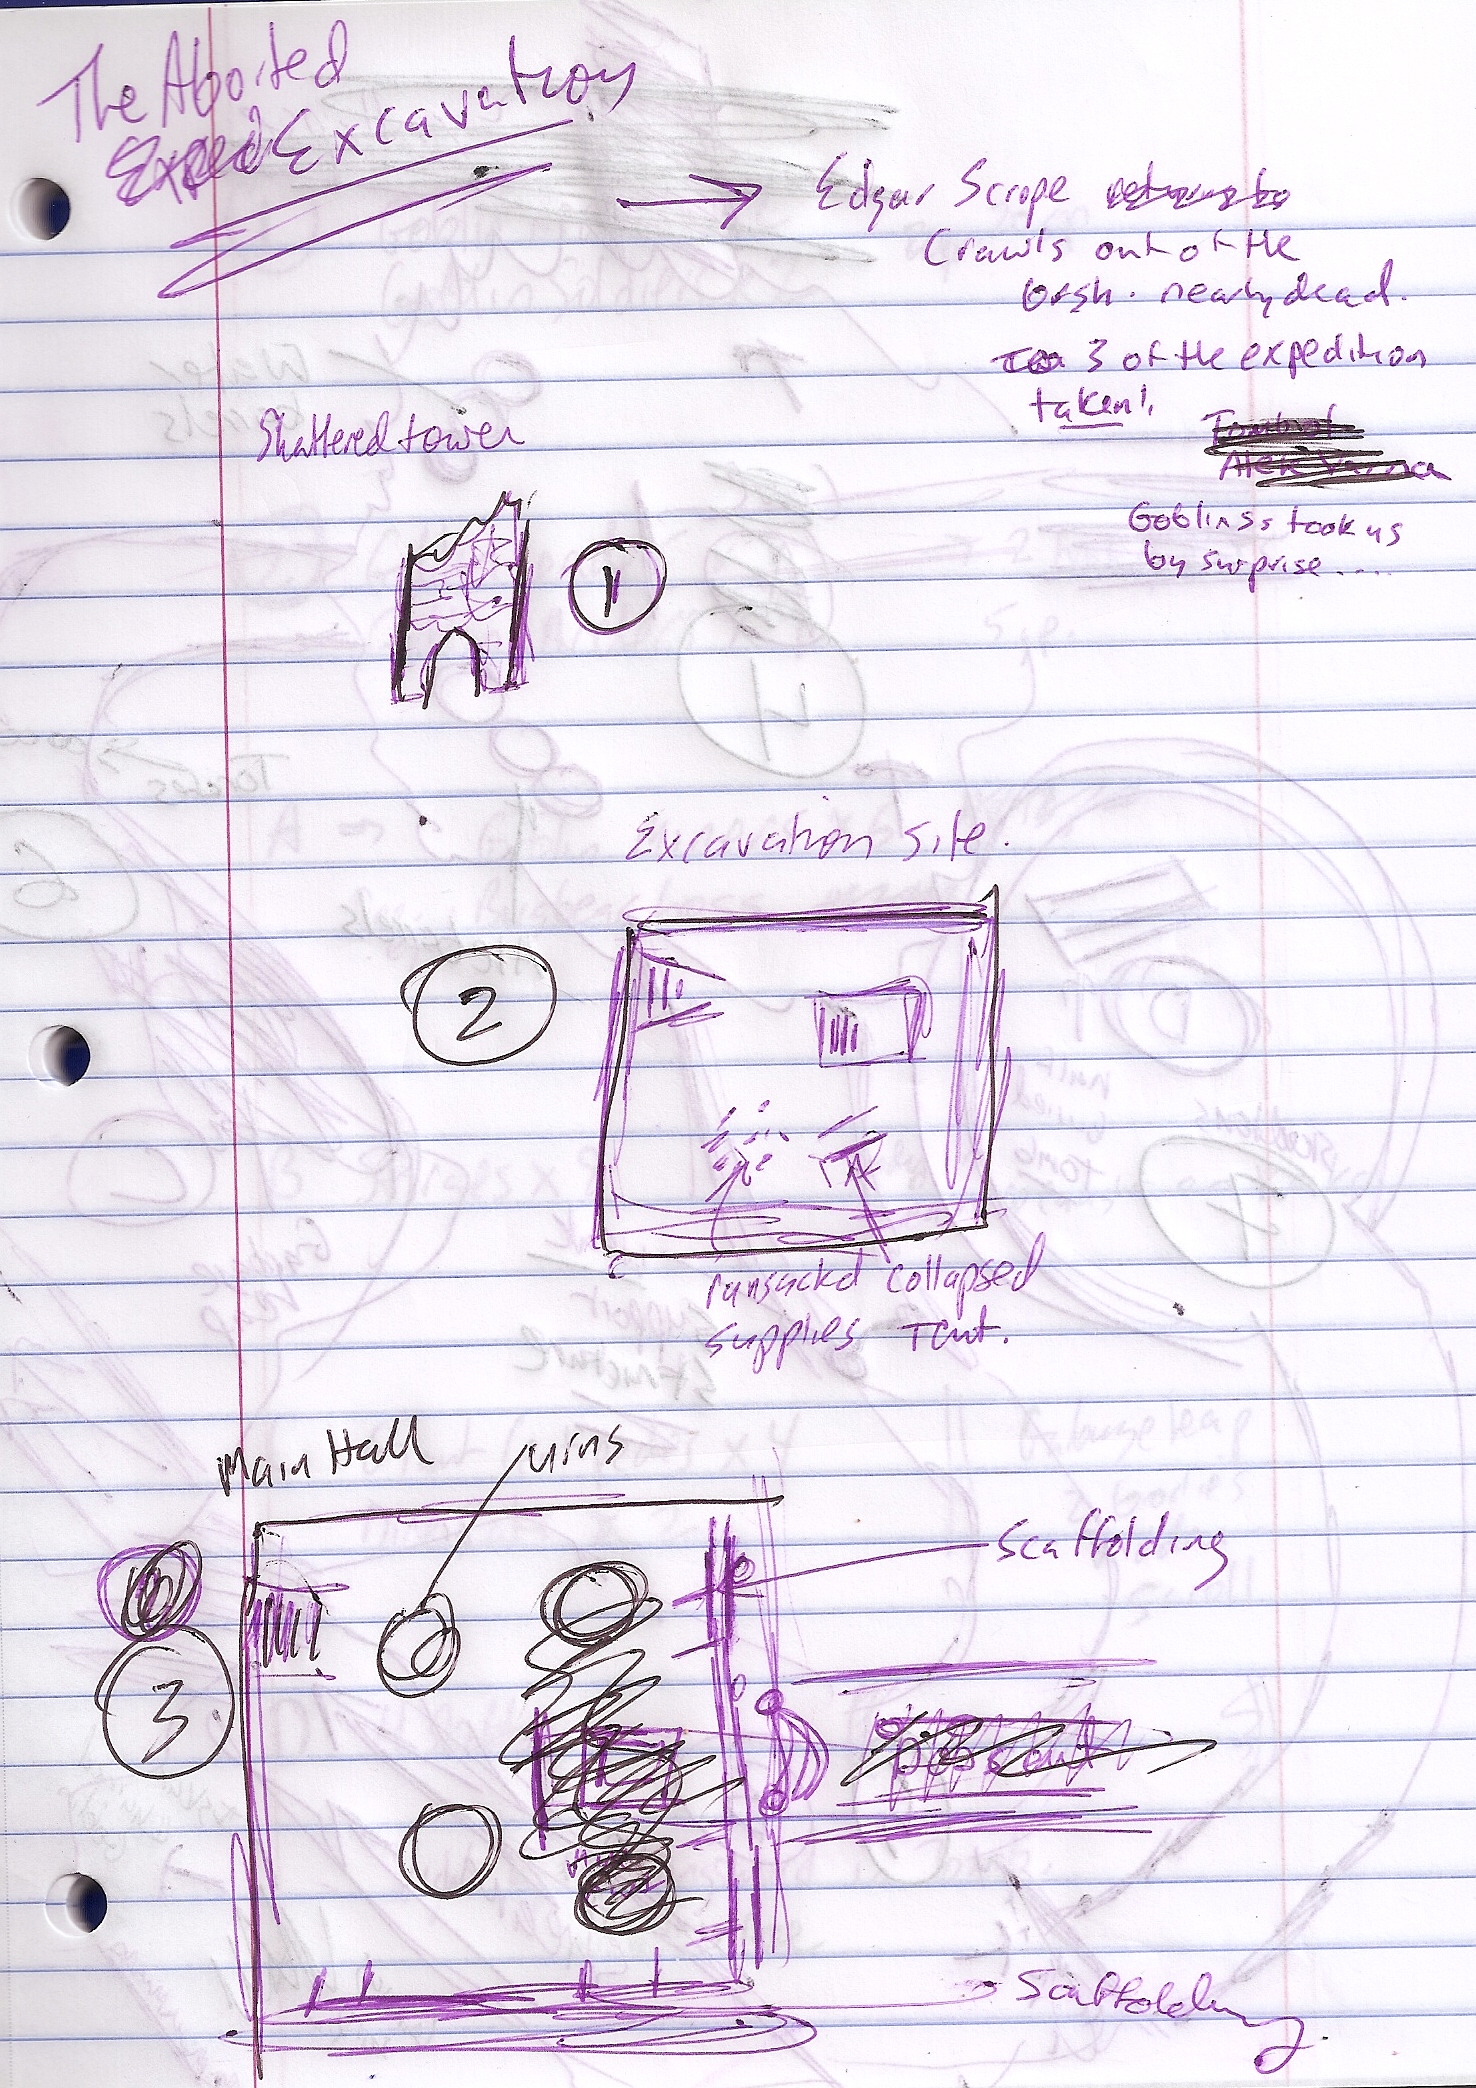 The Aborted
Excavation
Edgar Scrope
Crawls out of the
nearly dead.
3 of the expedition
taken!
Goblins took us
by surprise....
Shattered tower
1
Excavation site.
2
ransackd collapsed
supplies Tent.
Main Hall
Scaffolding
3
Scaffolding